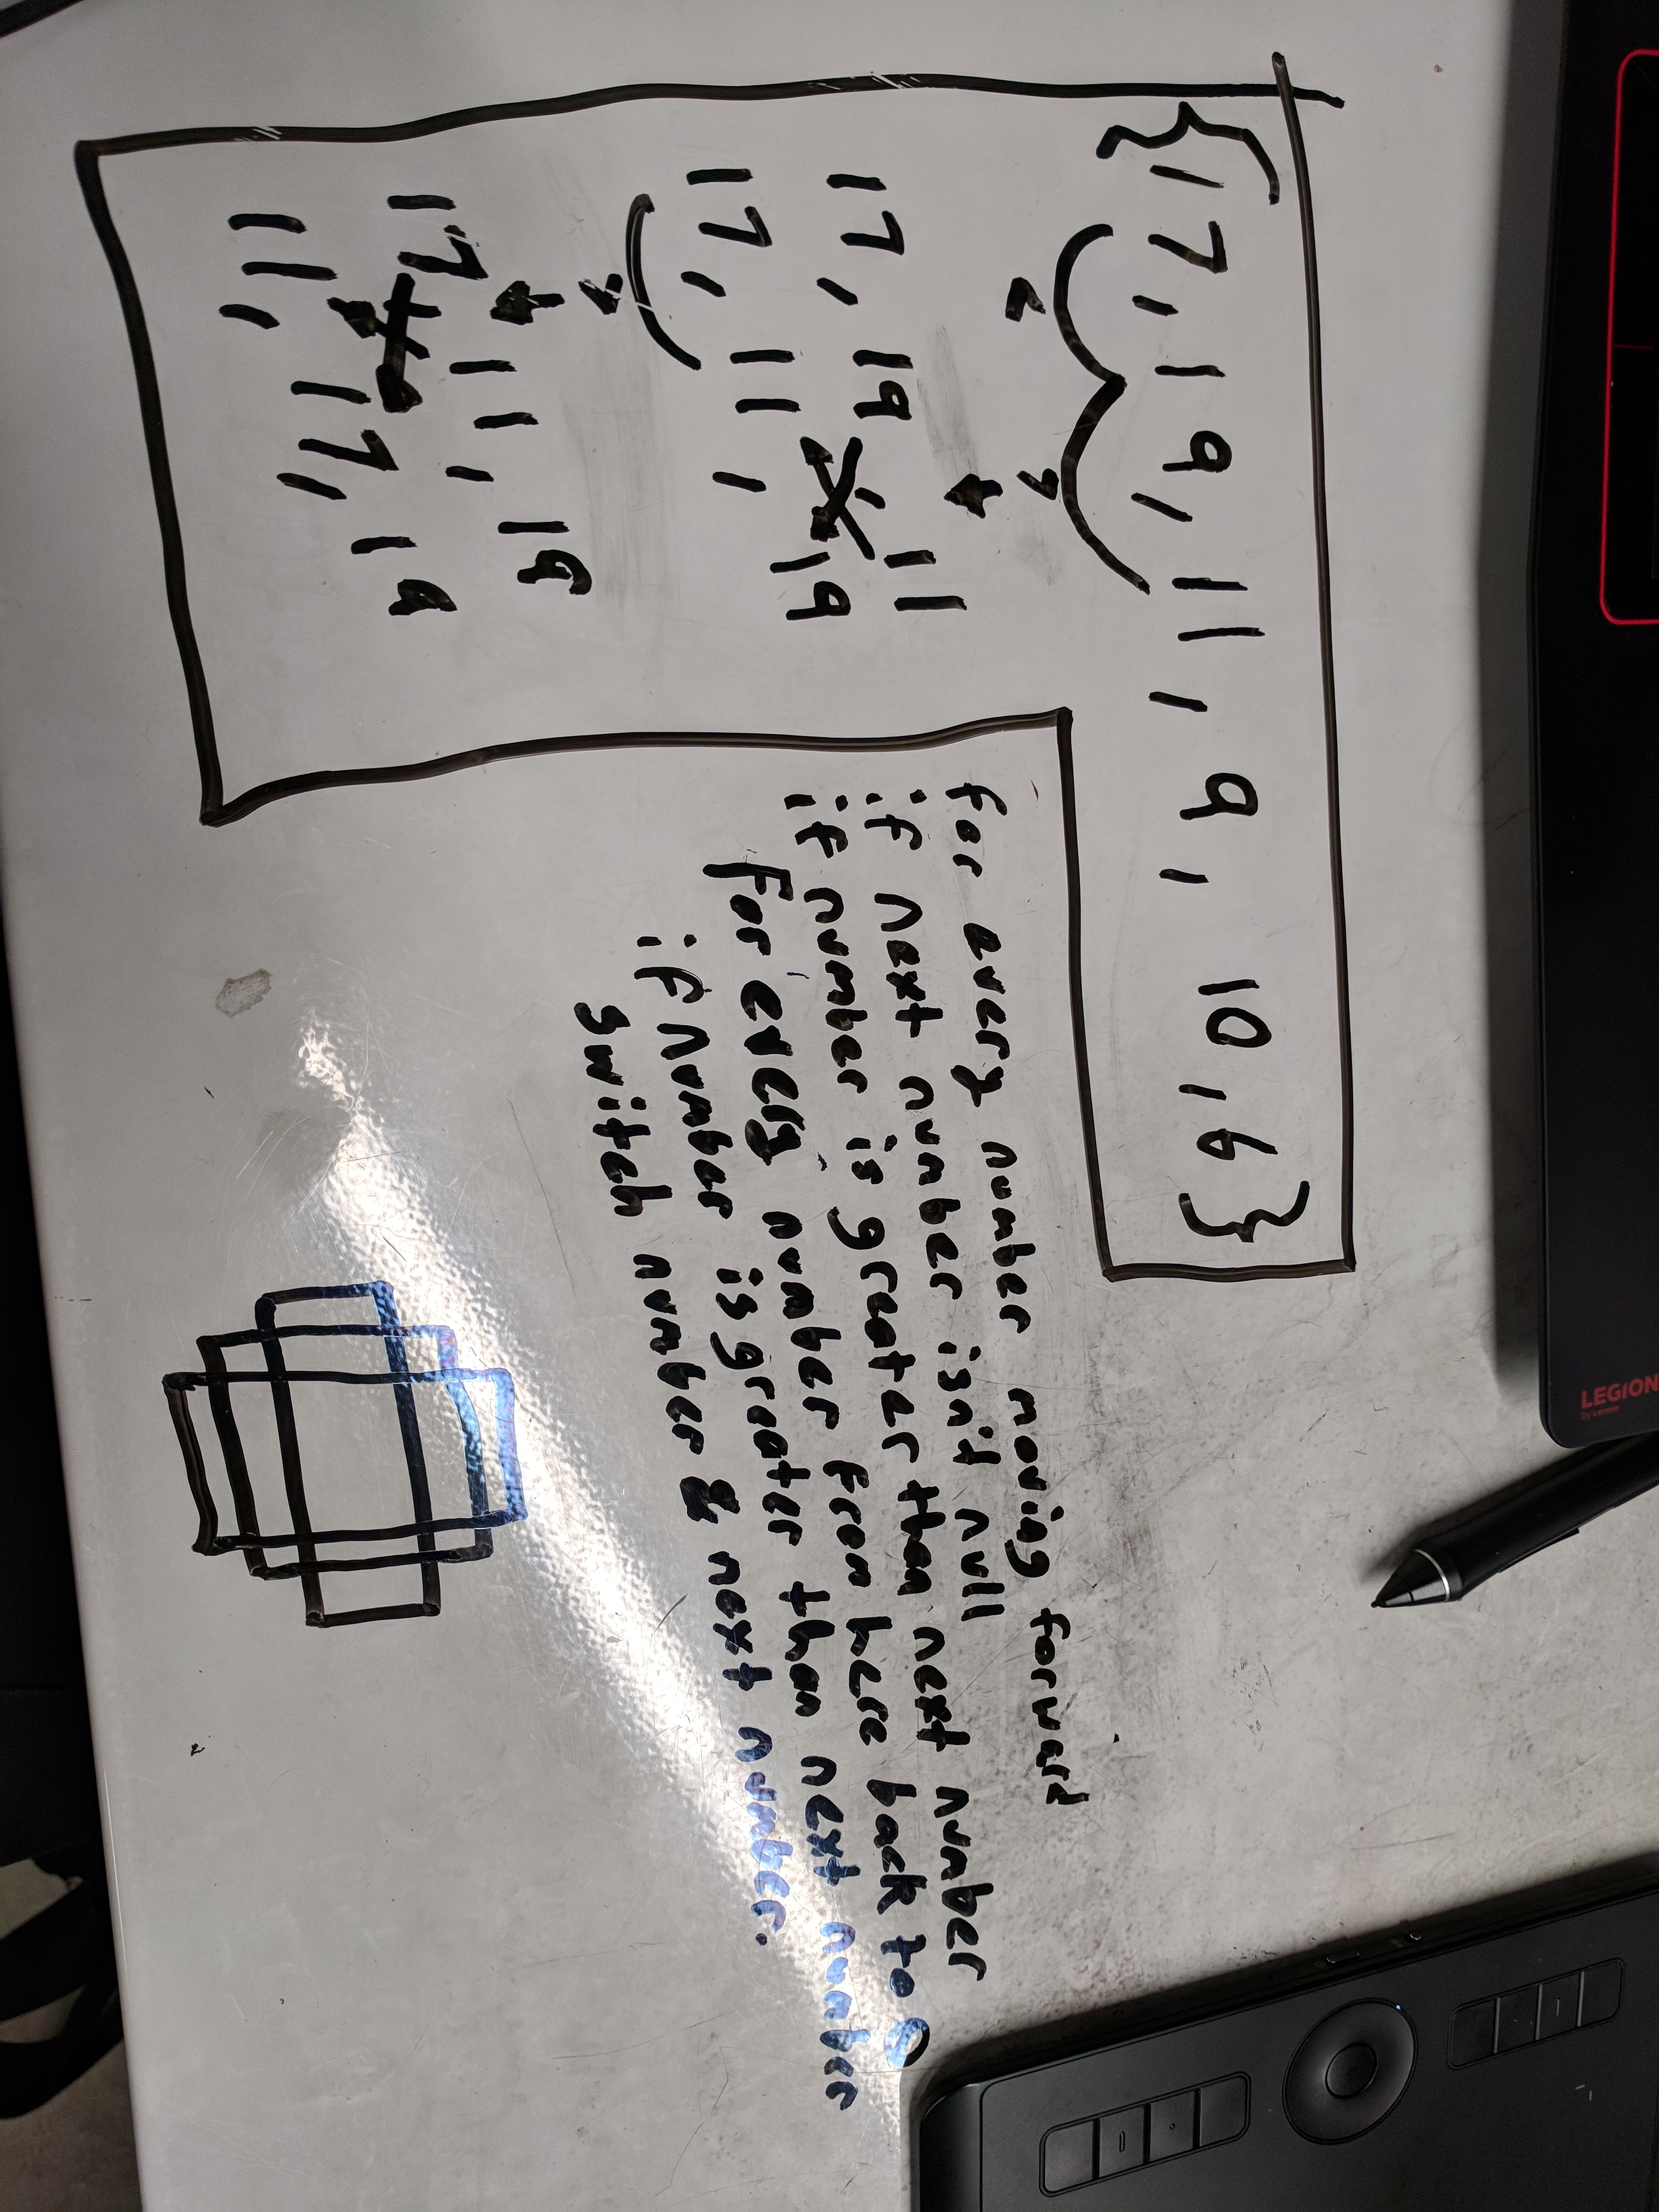 LEGION
by Lenovo
{17, 19, 11, 9, 10, 6}
<
>
17, 19, 11
17, 11, 19
>
17, 11, 19
11, 17, 19
for every number moving forward
if next number isn't null
if number is greater than next number
for every number from here back to 0
if number is greater than next number
switch number & next number.